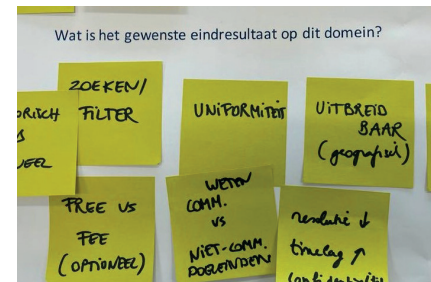 Wat is het gewenste eindresultaat op dit domein?
ZOEKEN/
FILTER
UNIFORMITEIT
UITBREID
BAAR
(geografisch)
FREE VS
FEE
(OPTIONEEL)
WETEN
COMM.
VS
NIET-COMM.
DOELEINDEN
resolutie ↓
timelag ↑